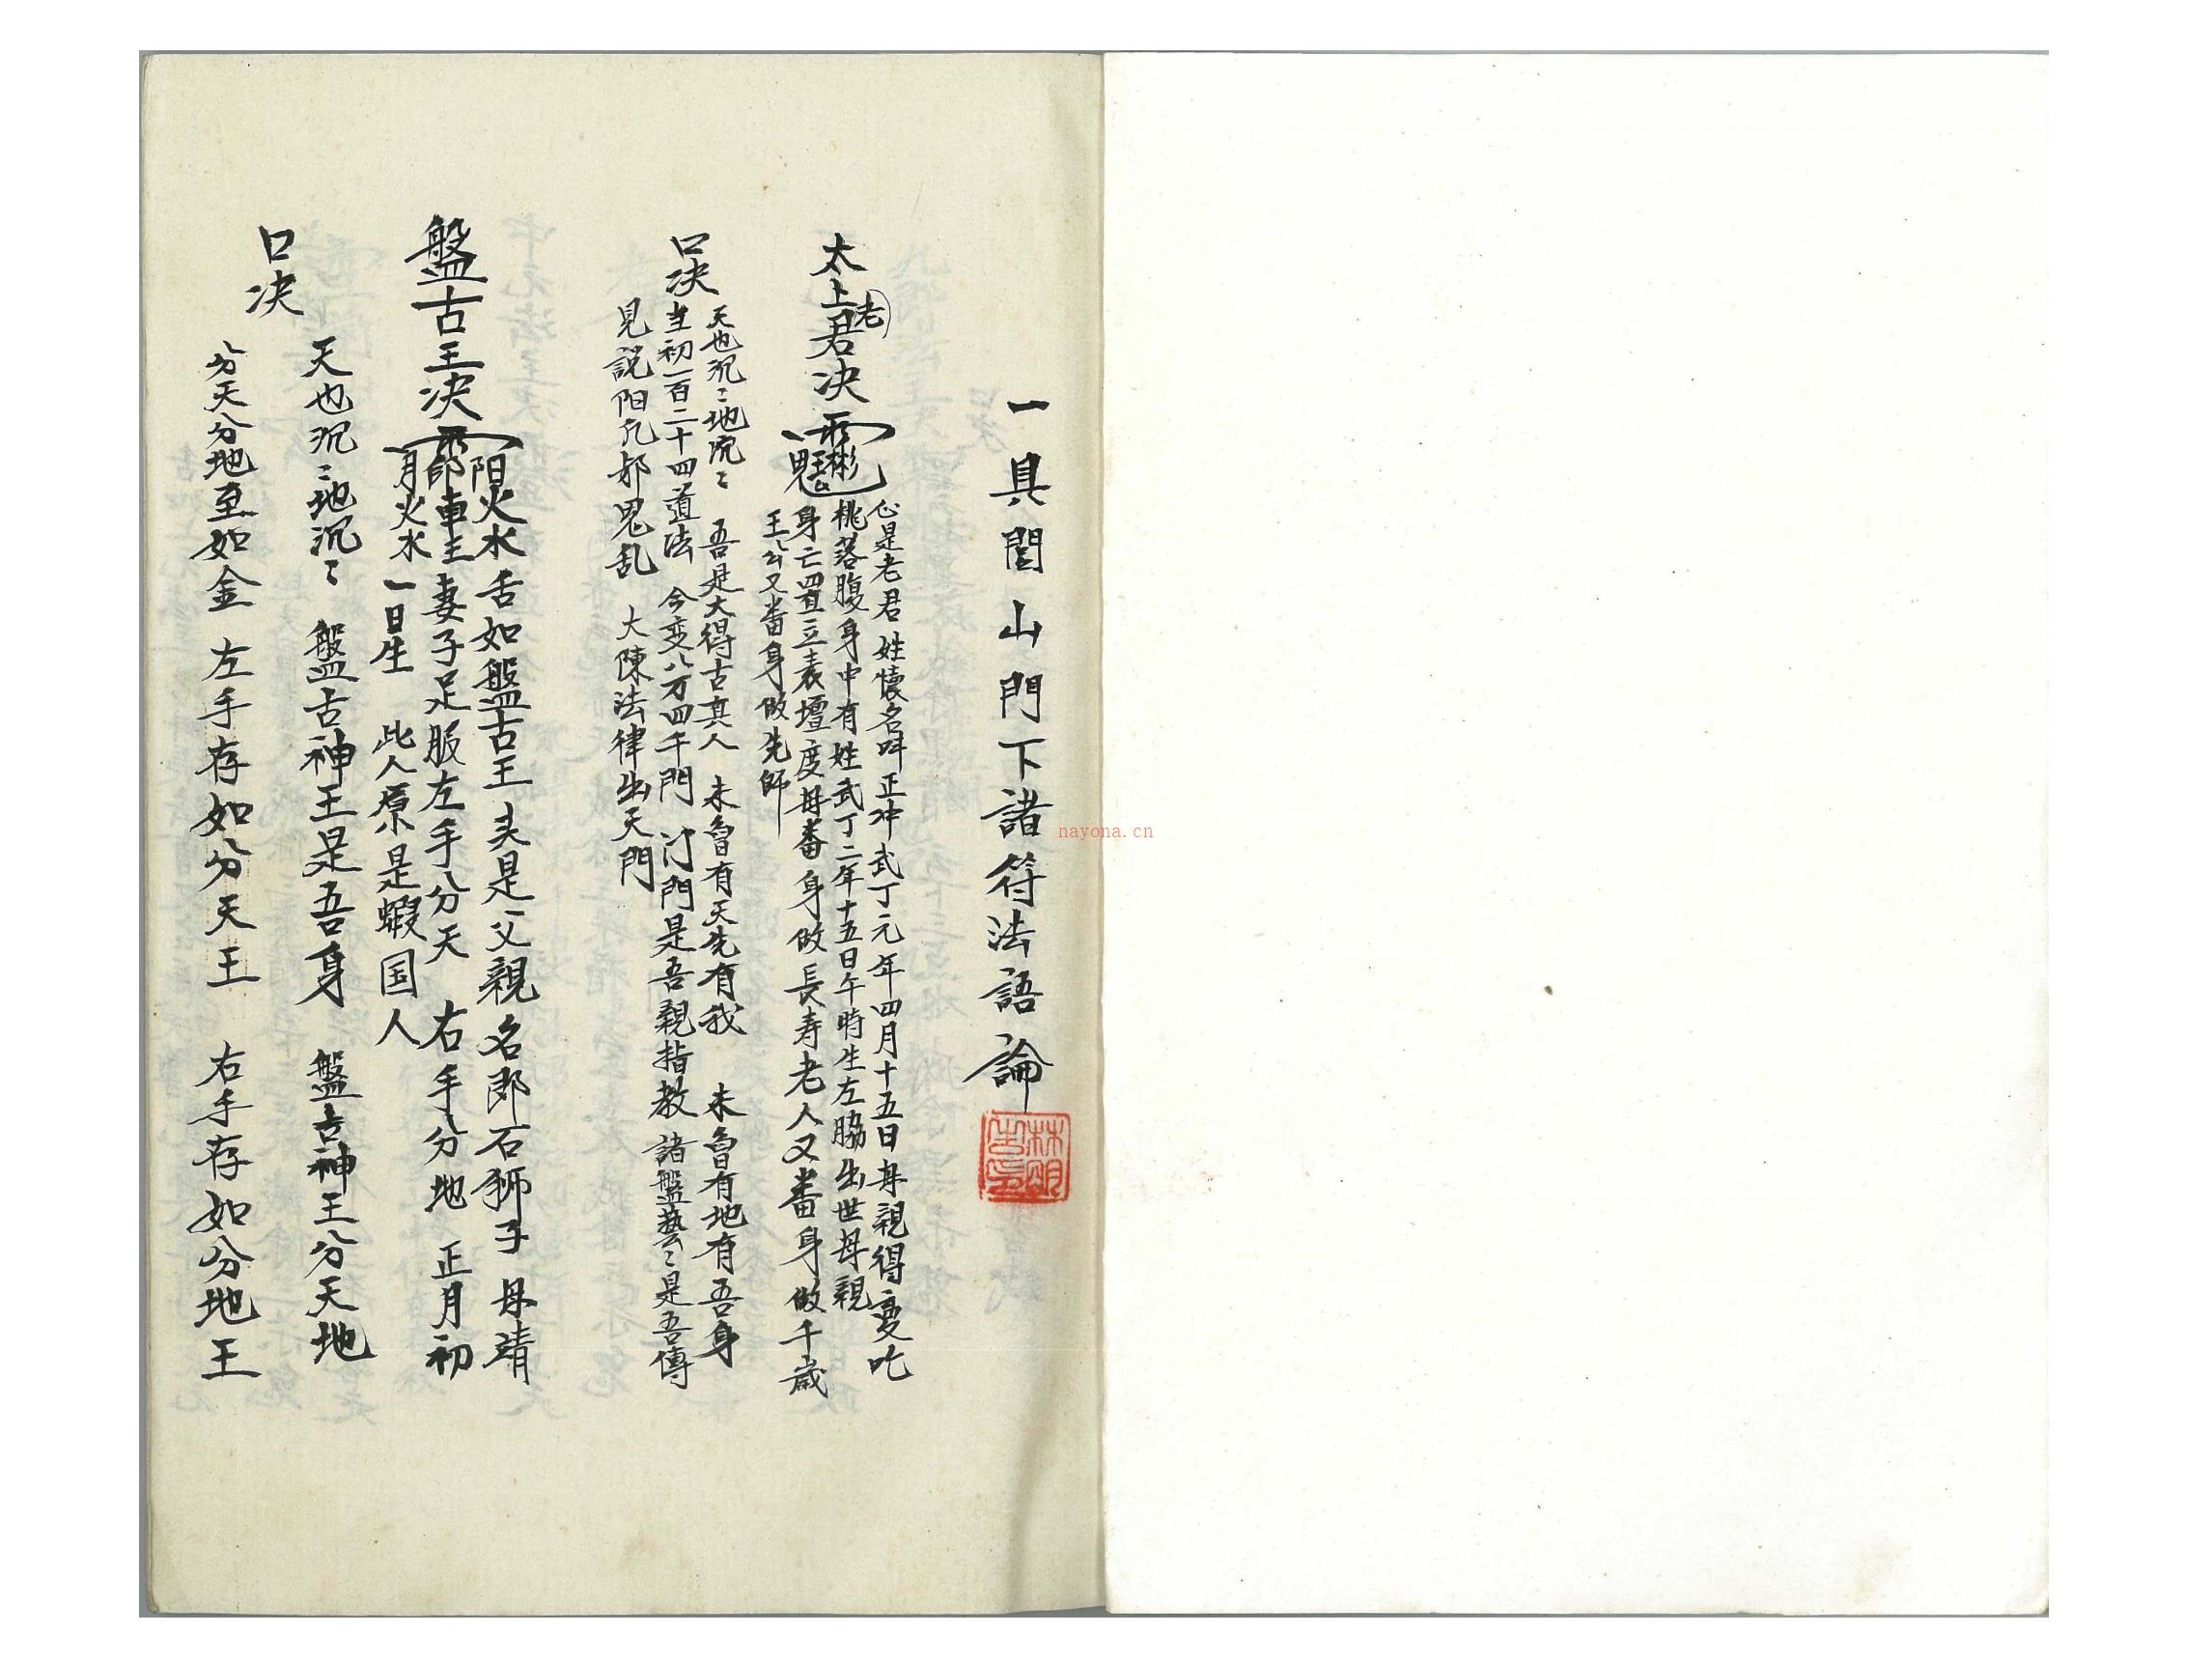 一具閭山門下諸符法語論
太上老君決
心是老君 姓懷名呌正冲 武丁元年四月十五日母親得夏吃
桃落腹身中有姓武丁二年十五日午時生左脇出世母親
身亡四置立表壇度母番身做長寿老人又番身做千歲
王公又番身做先師
口决
天也沉〻地沉〻 吾是大得古真人 未魯有天先有我 未魯有地有吾身
当初一百二十四道法 今変八万四千門 门門是吾親指教 諸盤藝〻是吾傳
見説阳凢邪鬼乱 大陳法律出天門
盤古王决
阳火水 舌如盤古王 夫是父親名郎石狮子 母靖
車主妻子足服左手分天 右手分地 正月初
月火水一日生 此人原是蝦国人
口决
天也沉〻地沉〻 盤古神王是吾身 盤古神王分天地
分天分地至如金 左手存如分天王 右手存如分地王
nayona.cn